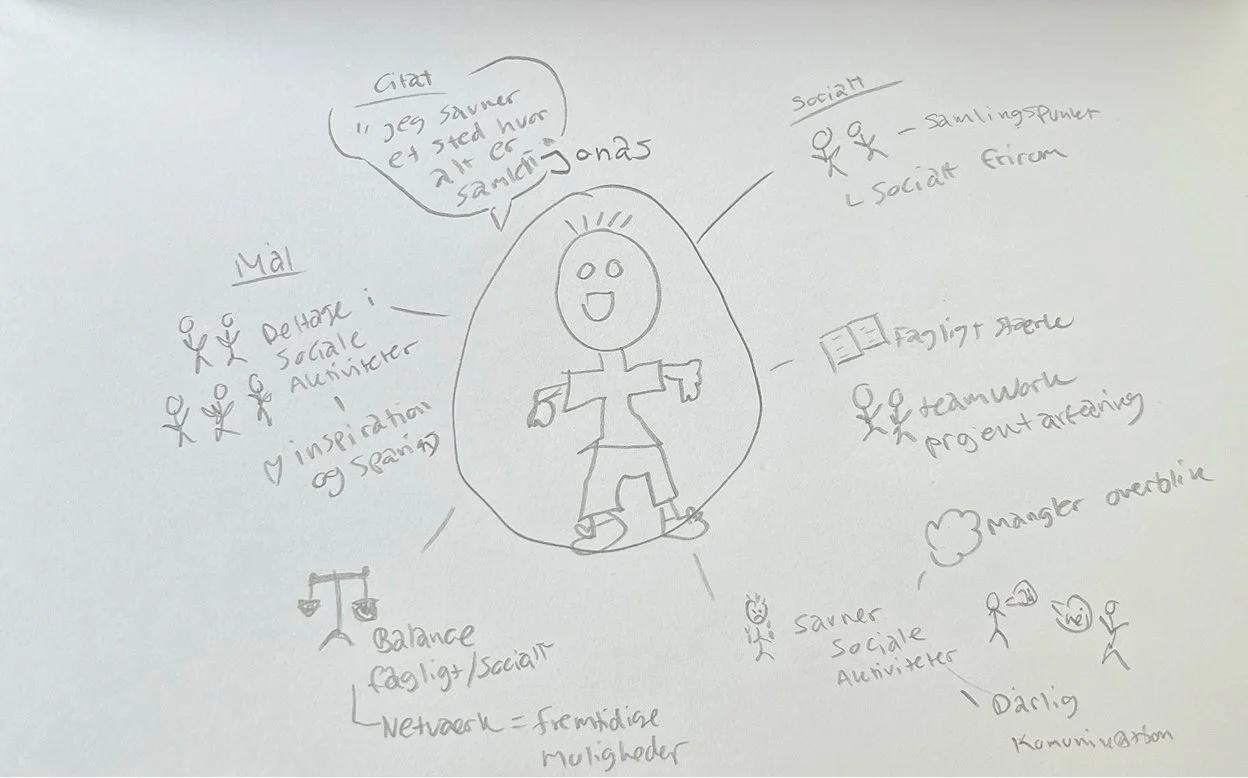 Citat
"jeg savner
et sted hvor
alt er
samlet"
Jonas
Socialt
- Samlingspunkt
Socialt frirum
Mål
Deltage i
Sociale
Aktiviteter
inspiration
og sparing
Fagligt stærk
teamwork
Mangler overblik
Balance
fagligt/Socialt
Netværk = fremtidige
Muligheder
Savner
Sociale
Aktiviteter
nej
Dårlig
Komunikation